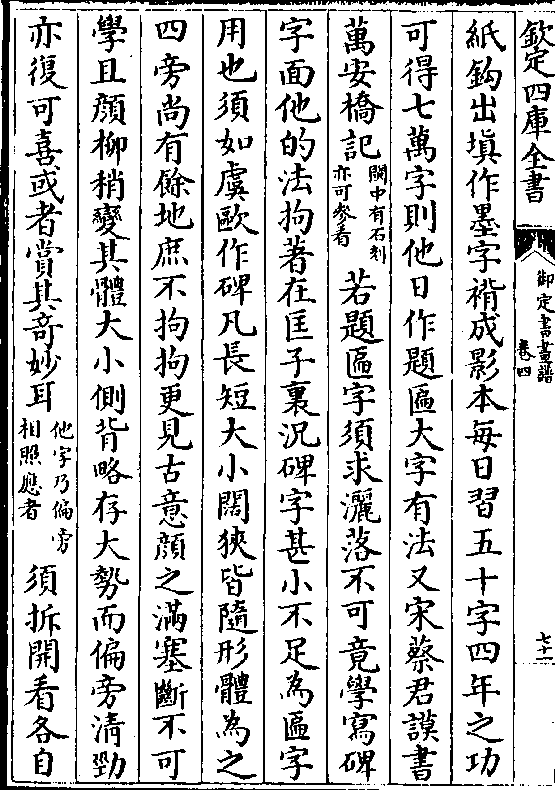 欽定四庫全書
御定書畫譜
卷四
七十一
紙鈎出填作墨字褙成影本每日習五十字四年之功
可得七萬字則他日作題匾大字有法又宋蔡君謨書
萬安橋記閩中有石刻亦可參看若題匾字須求灑落不可竟學寫碑
字面他的法拘著在匡子裏況碑字甚小不足為匾字
用也須如虞歐作碑凡長短大小闊狹皆隨形體為之
四旁尚有餘地庶不拘拘更見古意顔之滿塞斷不可
學且顔柳稍變其體大小側背略存大勢而偏旁清勁
亦復可喜或者賞其奇妙耳他字乃偏旁相照應者須拆開看各自